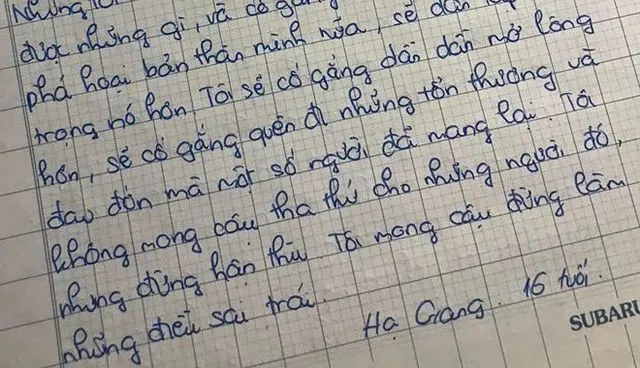 những
được những gì, và cố
phá hoại bản thân mình nữa, sẽ
trọng nó hơn. Tôi sẽ cố gắng dần dần mở lòng
hơn, sẽ cố gắng quên đi những tổn thương và
đau đớn mà một số người đã mang lại. Tôi
không mong cậu tha thứ cho những người đó,
nhưng đừng hận thù. Tôi mong cậu đừng làm
những điều sai trái.
Hạ Giang. 16 tuổi.
SUBARU